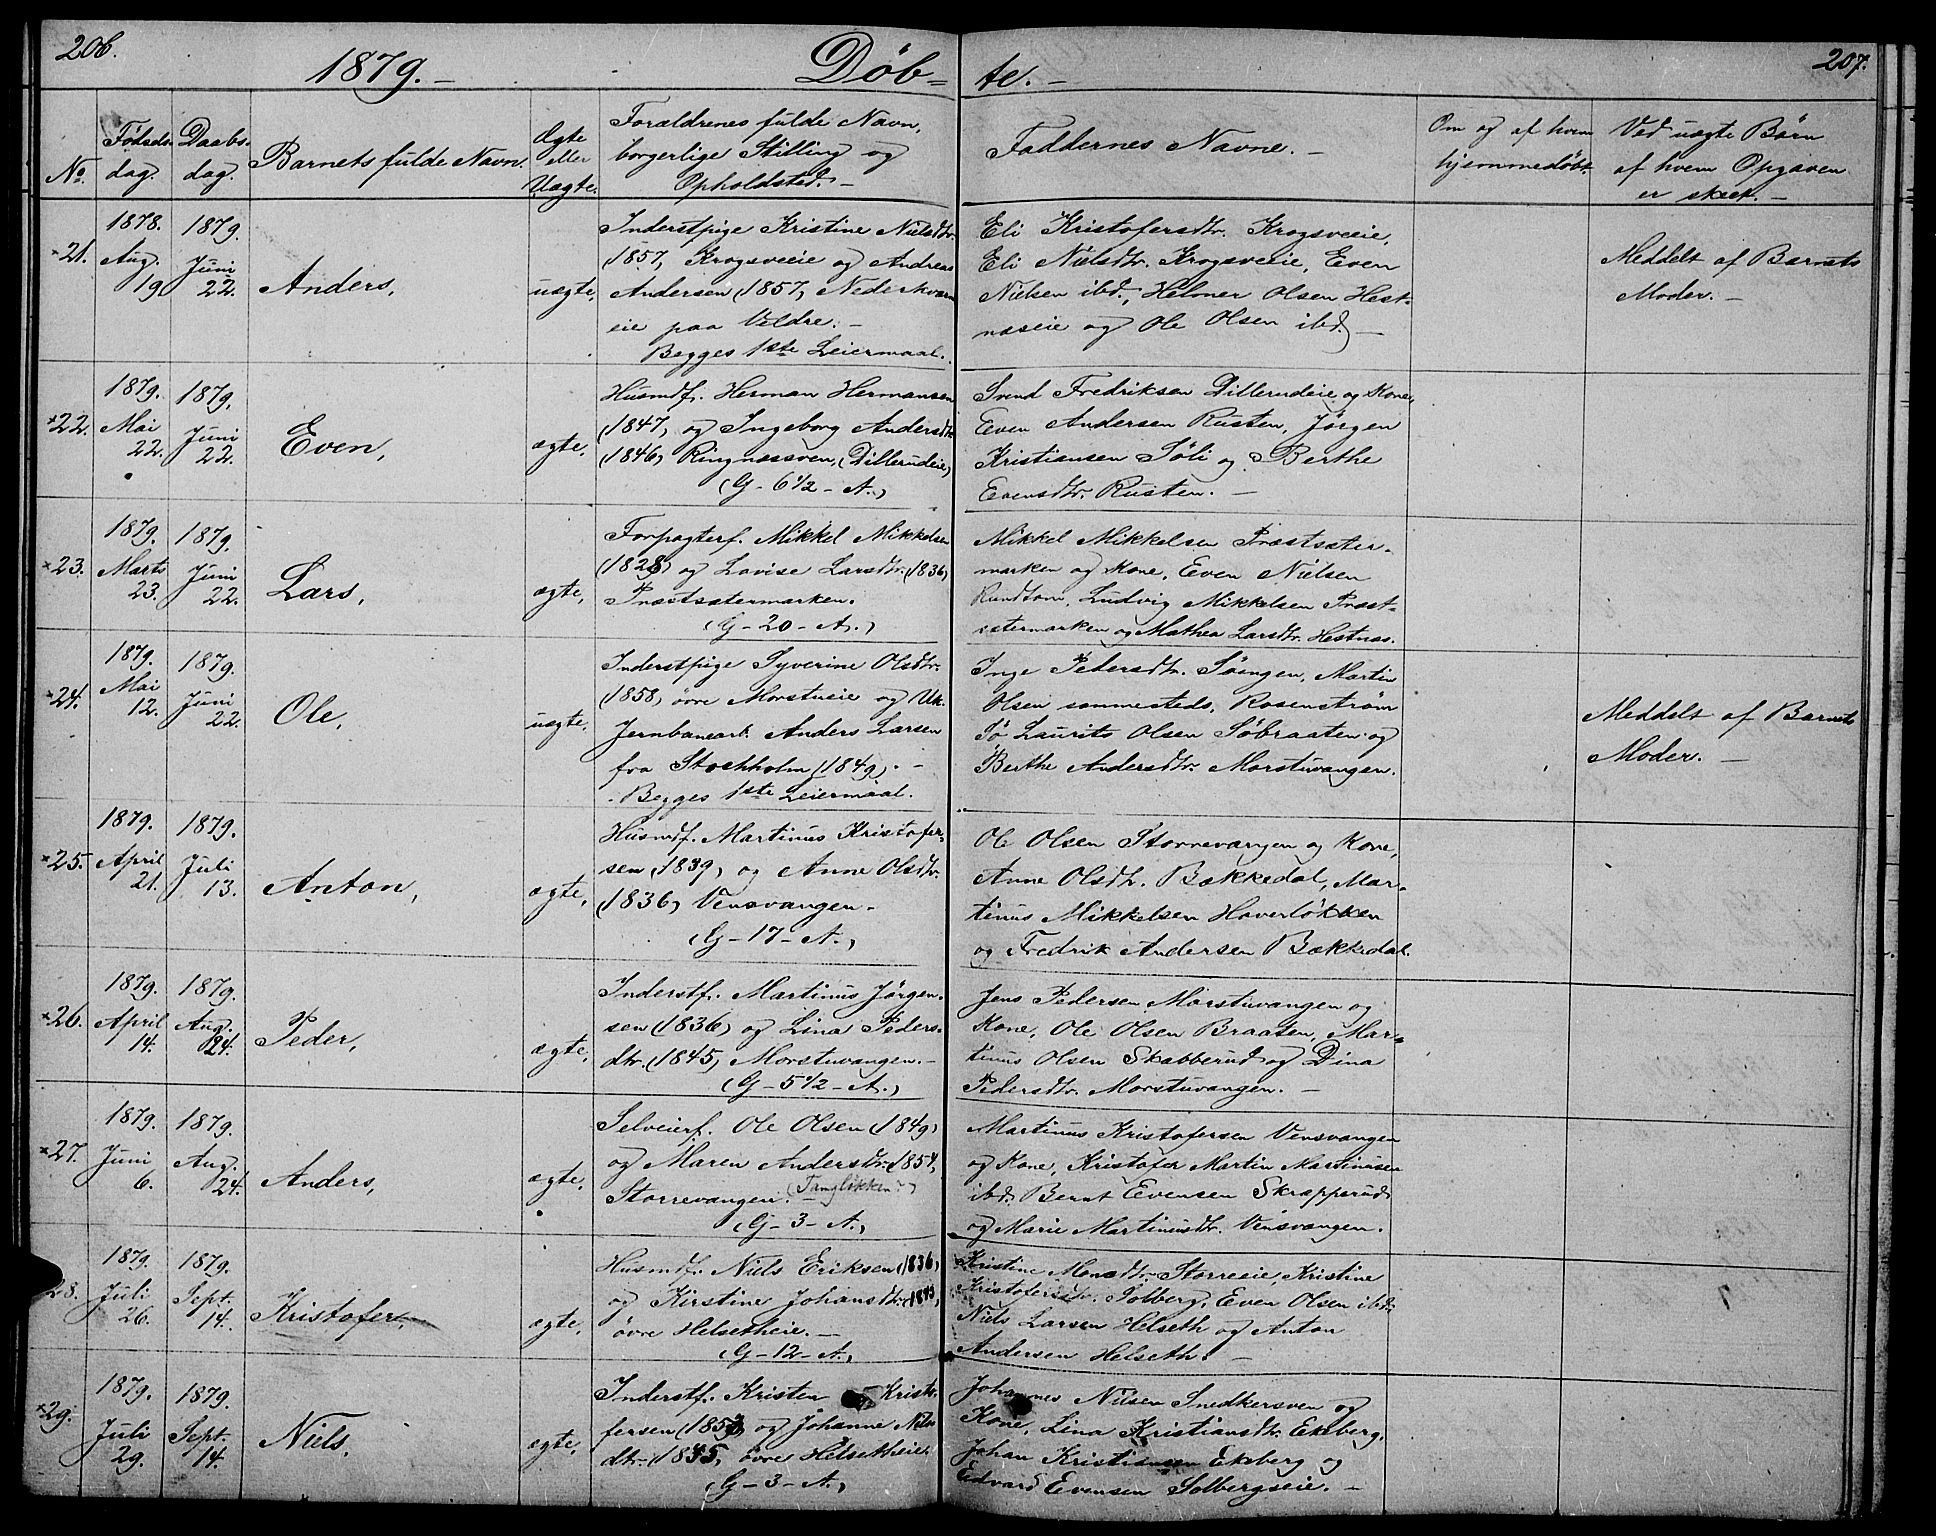 206.
1879.- Døb-
te.-
207.
No.
Fødsels-
dag.
Daabs-
dag.
Barnets fulde Navn.
Ægte
eller
Uægte.
Forældrenes fulde Navn,
borgerlige Stilling og
Opholdsted.-
Faddernes Navne.-
Om og af hvem
hjemmedøbt.
Ved uægte Børn
af hvem Opgaven
er skeet.-
×21.
1878.
Aug.
19.
1879.
Juni
22.
Anders,
uægte,
Inderstpige Kristine Nielsdtr.
(1857, Krogsveeie og Andreas
Andersen (1857, Nederkværn
eie paa Veldre.-
Begges 1ste Leiermaal.
Eli Kristofersdtr. Krogsveeie,
Eli Nielsdtr. Krogsveeie, Even
Nielsen ibd., Helmer Olsen Hest-
næseie og Ole Olsen ibd.-
Meddelt af Barnets
Moder.-
×22.
1879.
Mai
22.
1879.
Juni
22.
Even,
ægte,
Husmdf. Herman Hermansen
(1847, og Ingeborg Andersdtr.
(1846) Ringnæssven, (Dillerudeie)
(G-6 1/2-A.)
Svend Fredriksen Dillerudeie og Kone,
Even Andersen Rusten, Jørgen
Kristiansen Søli og Berthe
Evensdtr. Rusten.-
×23.
1879.
Marts
23.
1879.
Juni
22.
Lars,
ægte,
Forpagterf. Mikkel Mikkelsen
(1828) og Lovise Larsdtr. (1836)
Præstsætermarken.
(G-20-A.)
Mikkel Mikkelsen Præstsæter-
marken og Kone, Even Nielsen
Rundtom, Ludvig Mikkelsen Præst-
sætermarken og Mathea Larsdtr. Hestnæs.
×24.
1879.
Mai
12.
1879.
Juni
22.
Ole,
uægte,
Inderstpige Syverine Olsdtr.
(1858) øvre Morstueie og Uk.
Jernbanearb. Anders Larsen
fra Stockholm (1849).-
Begges 1ste Leiermaal.
Inge Pedersdtr. Søengen, Martin
Olsen sammesteds, Rosenstrøm
Sø Laurits Olsen Søbraaten og
Berthe Andersdtr. Morstuvangen.
Meddelt af Barnets
Moder.-
×25.
1879.
April
21.
1879.
Juli
13.
Anton,
ægte,
Husmdf. Martinus Kristofer-
sen (1839) og Anne Olsdtr.
(1836) Vensvangen.
(G-17-A.)
Ole Olsen Storrevangen og Kone,
Anne Olsdtr. Bækkedal, Mar-
tinus Mikkelsen Haverløkken
og Fredrik Andersen Bækkedal.
×26.
1879.
April
14.
1879.
Aug.
24.
Peder,
ægte,
Inderstf. Martinus Jørgen-
sen (1836) og Lina Peders-
dtr. (1845, Morstuvangen.-
(G-5 1/2-A.)
Jens Pedersen Morstuvangen og
Kone, Ole Olsen Braaten, Mar-
tinus Olsen Skabberud og Dina
Pedersdtr. Morstuvangen.-
×27.
1879.
Juni
6.
1879.
Aug.
24.
Anders,
ægte,
Selveierf. Ole Olsen (1849)
og Maren Andersdtr. (1854,
Storrevangen. (Tangløkken?)
(G-3-A.)
Martinus Kristofersen Vensvangen
og Kone, Kristofer Martin Martinusen
ibd. Bernt Evensen Skrapperud
og Marie Martinusdtr. Vensvangen.
28.
1879.
Juli
26.
1879.
Sept.
14.
Kristofer,
ægte,
Husmdf. Niels Eriksen (1836,
og Kirstine Johansdtr. (1843,
øvre Helsetheie.-
(G-12-A.)
Kristine Monsdtr. Storreeie, Kristine
Kristofersdtr. Solberg, Even Olsen ibd.
Niels Larsen Helseth og Anton
Andersen Helseth.-
×29.
1879.
Juli
29.
1879.
Sept.
14.
Niels,
ægte,
Inderstf. Kristen Kristo-
fersen og Johanne Niels
dtr. øvre Helsetheie.
(G-3-A.)
Johannes Nilsen Snedkersven og
Kone, Lina Kristiansdtr. Ekeberg,
Johan Kristiansen Ekeberg og
Edvard Evensen Solbergseie.-